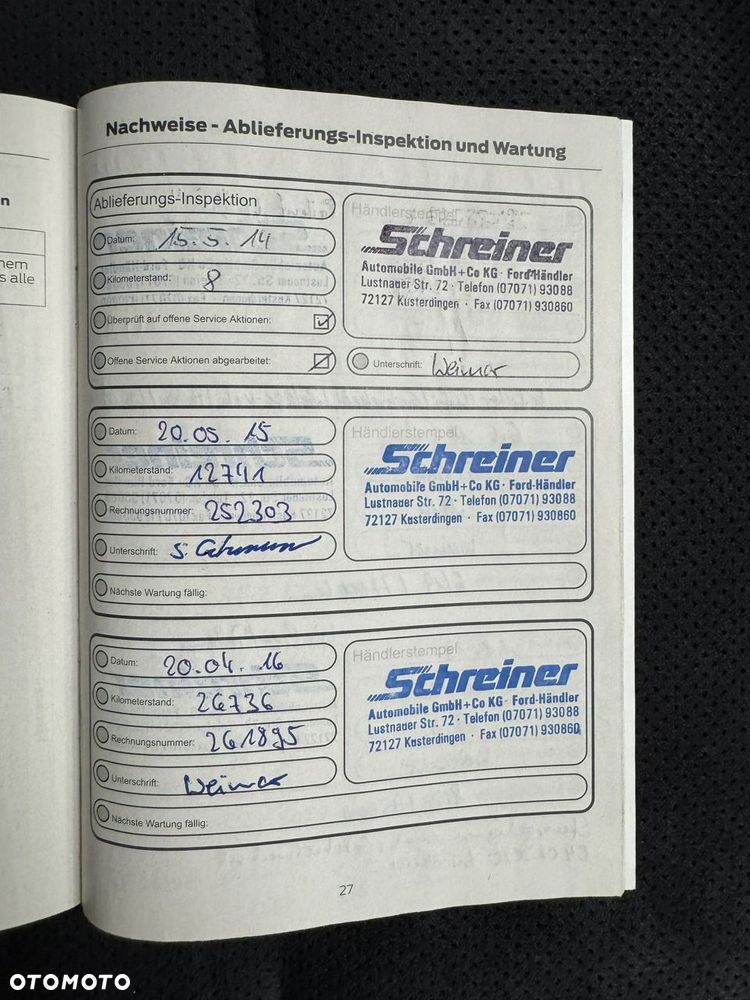 n
nem
s alle
Nachweise - Ablieferungs-Inspektion und Wartung
Ablieferungs-Inspektion
Datum: 15.5.14
Kilometerstand: 8
Überprüft auf offene Service Aktionen:
Offene Service Aktionen abgearbeitet:
Händlerstempel
Schreiner
Automobile GmbH+Co KG · Ford-Händler
Lustnauer Str. 72 · Telefon (07071) 93088
72127 Kusterdingen · Fax (07071) 930860
Unterschrift: Weimar
Datum: 20.05.15
Kilometerstand: 12741
Rechnungsnummer: 252303
Unterschrift: S.
Nächste Wartung fällig:
Händlerstempel
Schreiner
Automobile GmbH+Co KG · Ford-Händler
Lustnauer Str. 72 · Telefon (07071) 93088
72127 Kusterdingen · Fax (07071) 930860
Datum: 20.04.16
Kilometerstand: 26736
Rechnungsnummer: 261895
Unterschrift: Weimar
Nächste Wartung fällig:
Händlerstempel
Schreiner
Automobile GmbH+Co KG · Ford-Händler
Lustnauer Str. 72 · Telefon (07071) 93088
72127 Kusterdingen · Fax (07071) 930860
27
OTOMOTO